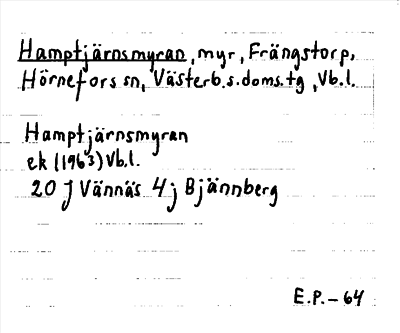 Hamptjärnsmyran, myr, Frängstorp,
Hörnefors sn, Västerb.s.doms.tg, Vb.l.
Hamptjärnsmyran
ek (1963) Vb.l.
20 J Vännäs 4 j Bjännberg
E.P. – 64